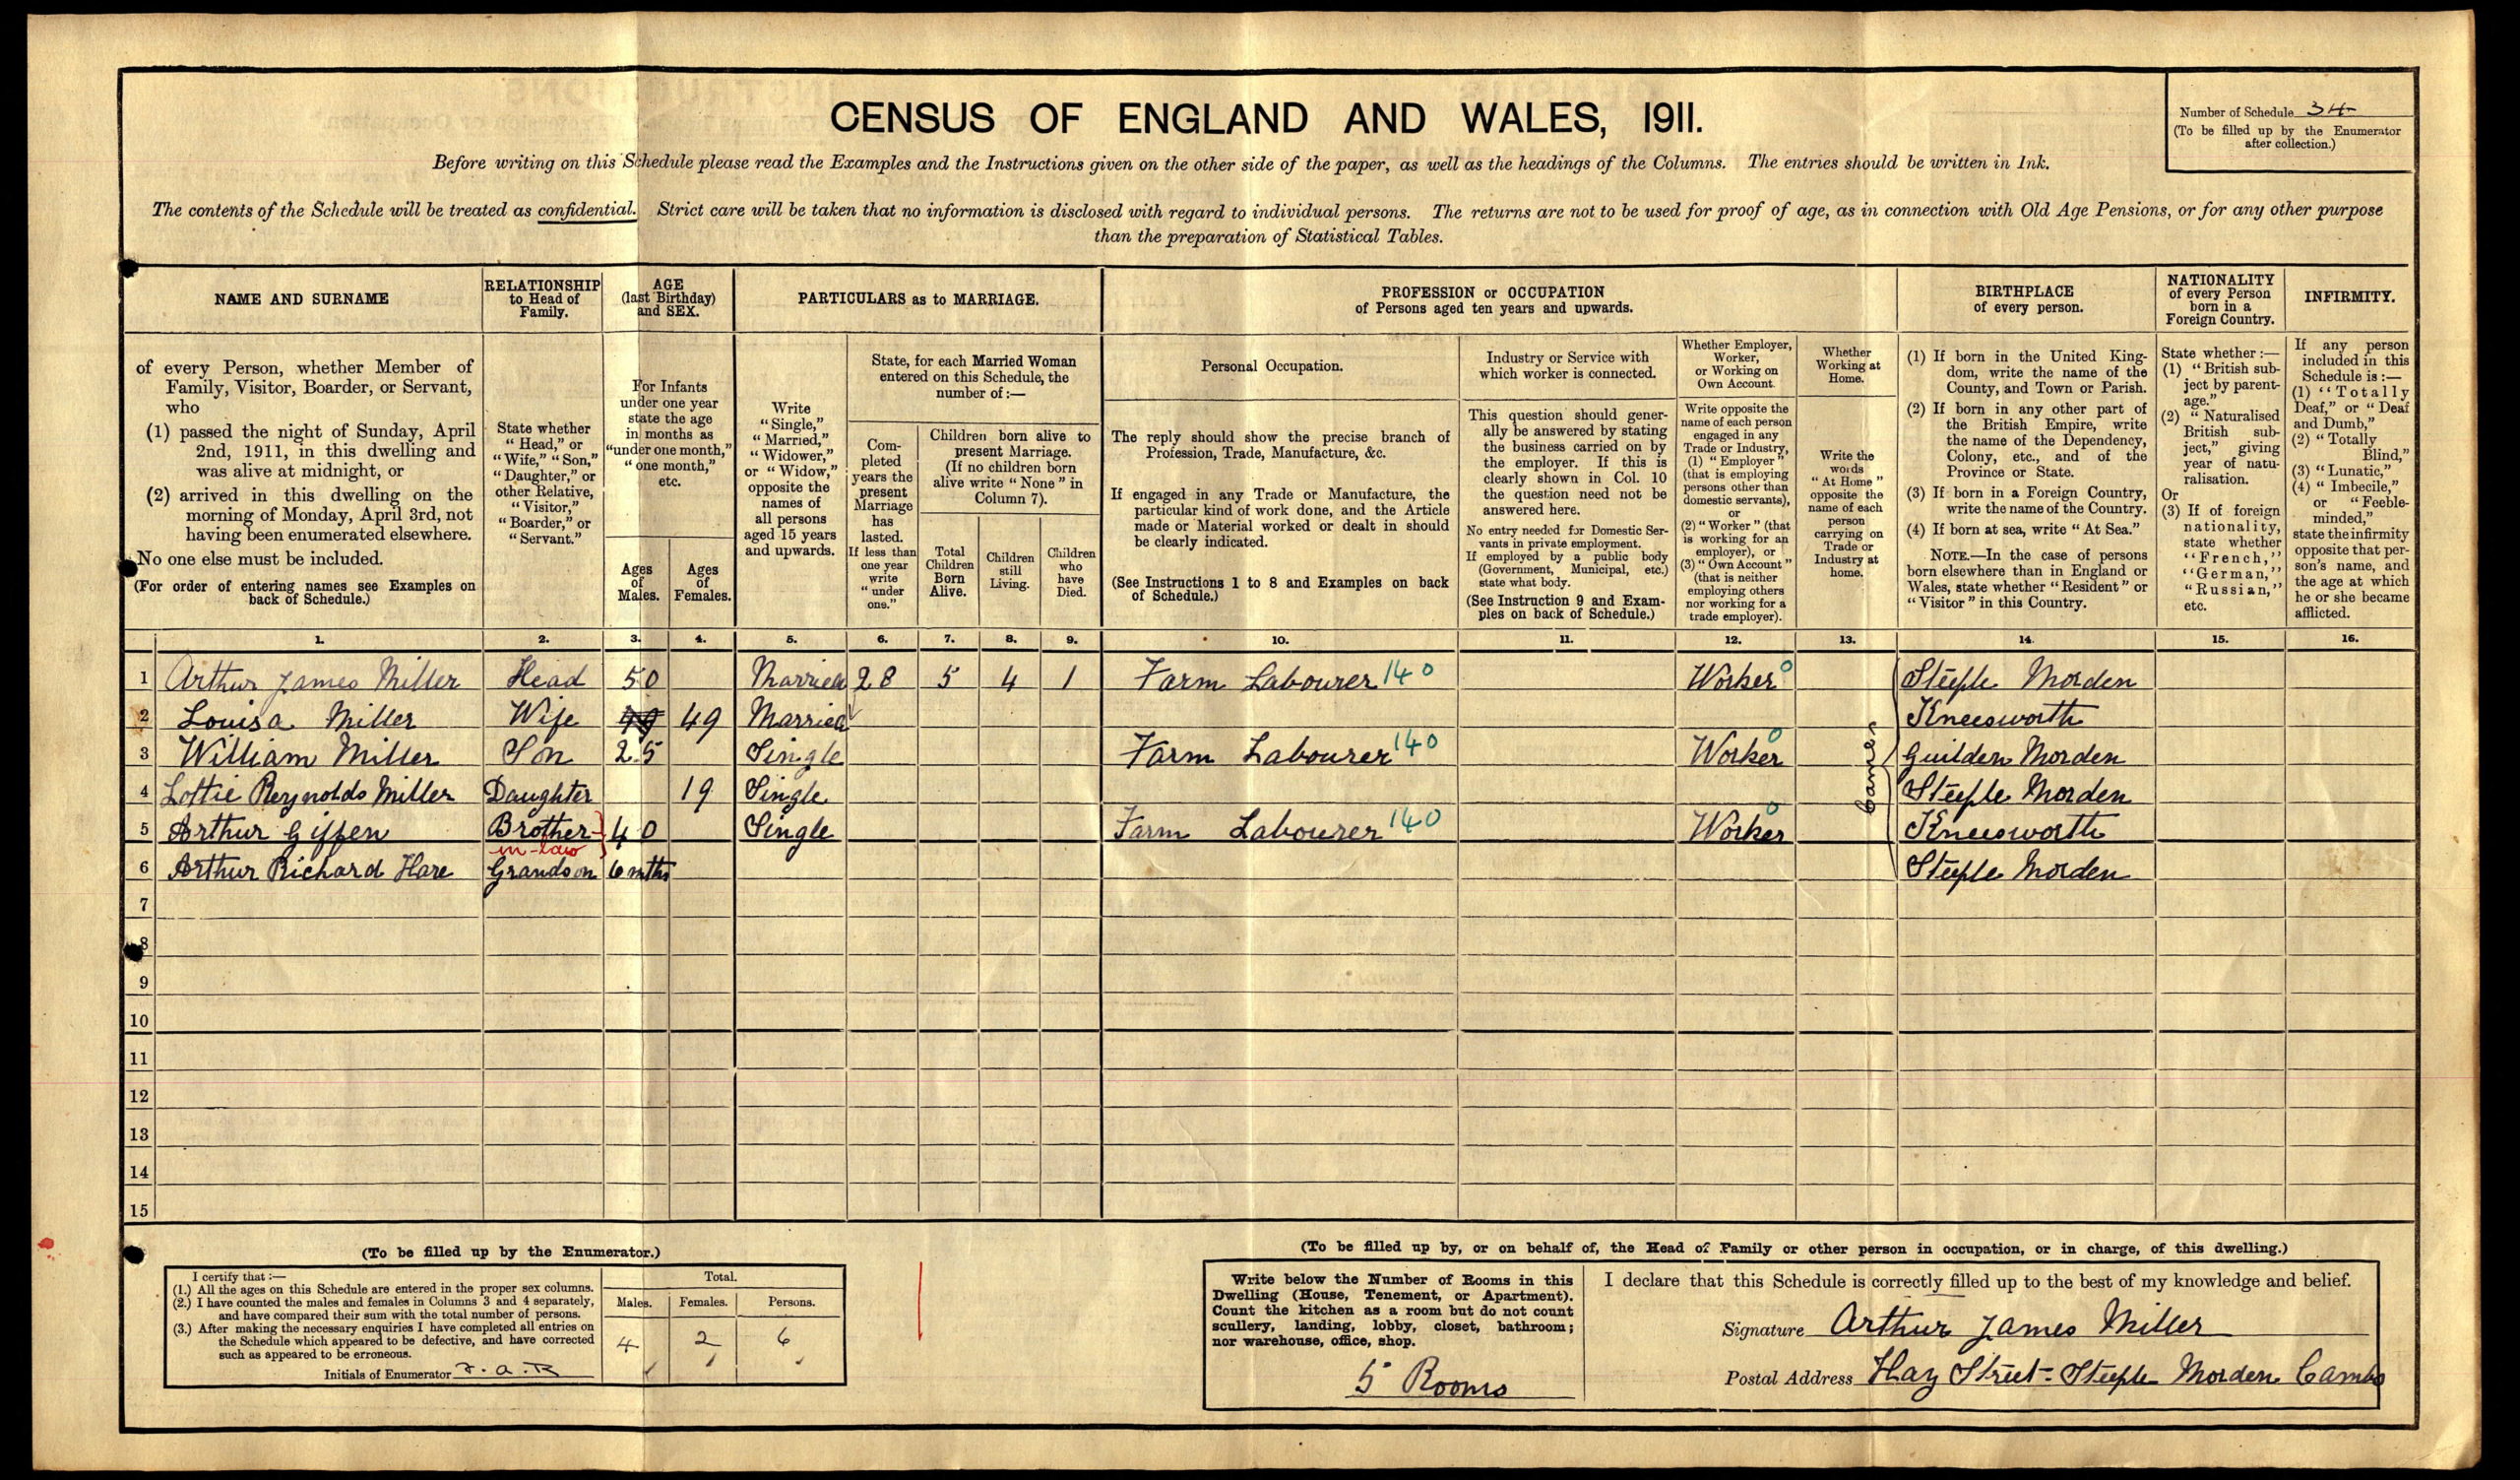 CENSUS OF ENGLAND AND WALES, 1911.
Number of Schedule 34
(To be filled up by the Enumerator
after collection.)
Before writing on this Schedule please read the Examples and the Instructions given on the other side of the paper, as well as the headings of the Columns. The entries should be written in Ink.
The contents of the Schedule will be treated as confidential. Strict care will be taken that no information is disclosed with regard to individual persons. The returns are not to be used for proof of age, as in connection with Old Age Pensions, or for any other purpose
than the preparation of Statistical Tables.
NAME AND SURNAME
of every Person, whether Member of
Family, Visitor, Boarder, or Servant,
who
(1) passed the night of Sunday, April
2nd, 1911, in this dwelling and
was alive at midnight, or
(2) arrived in this dwelling on the
morning of Monday, April 3rd, not
having been enumerated elsewhere.
No one else must be included.
(For order of entering names see Examples on
back of Schedule.)
RELATIONSHIP
to Head of
Family.
State whether
"Head," or
"Wife," "Son,"
"Daughter," or
other Relative,
"Visitor,"
"Boarder," or
"Servant."
AGE
(last Birthday)
and SEX.
For Infants
under one year
state the age
in months as
"under one month,"
"one month,"
etc.
Ages
of
Males.
Ages
of
Females.
PARTICULARS as to MARRIAGE.
Write
"Single,"
"Married,"
"Widower,"
or "Widow,"
opposite the
names of
all persons
aged 15 years
and upwards.
State, for each Married Woman
entered on this Schedule, the
number of:—
Com-
pleted
years the
present
Marriage
has
lasted.
If less than
one year
write
"under
one."
Children born alive to
present Marriage.
(If no children born
alive write "None" in
Column 7).
Total
Children
Born
Alive.
Children
still
Living.
Children
who
have
Died.
PROFESSION or OCCUPATION
of Persons aged ten years and upwards.
Personal Occupation.
The reply should show the precise branch of
Profession, Trade, Manufacture, &c.
If engaged in any Trade or Manufacture, the
particular kind of work done, and the Article
made or Material worked or dealt in should
be clearly indicated.
(See Instructions 1 to 8 and Examples on back
of Schedule.)
Industry or Service with
which worker is connected.
This question should gener-
ally be answered by stating
the business carried on by
the employer. If this is
clearly shown in Col. 10
the question need not be
answered here.
No entry needed for Domestic Ser-
vants in private employment.
If employed by a public body
(Government, Municipal, etc.)
state what body.
(See Instruction 9 and Exam-
ples on back of Schedule.)
Whether Employer,
Worker,
or Working on
Own Account.
Write opposite the
name of each person
engaged in any
Trade or Industry,
(1) "Employer"
(that is employing
persons other than
domestic servants),
or
(2) "Worker" (that
is working for an
employer), or
(3) "Own Account"
(that is neither
employing others
nor working for a
trade employer).
Whether
Working at
Home.
Write the
words
"At Home"
opposite the
name of each
person
carrying on
Trade or
Industry at
home.
BIRTHPLACE
of every person.
(1) If born in the United King-
dom, write the name of the
County, and Town or Parish.
(2) If born in any other part of
the British Empire, write
the name of the Dependency,
Colony, etc., and of the
Province or State.
(3) If born in a Foreign Country,
write the name of the Country.
(4) If born at sea, write "At Sea."
NOTE.—In the case of persons
born elsewhere than in England or
Wales, state whether "Resident" or
"Visitor" in this Country.
NATIONALITY
of every Person
born in a
Foreign Country.
State whether:—
(1) "British sub-
ject by parent-
age."
(2) "Naturalised
British sub-
ject," giving
year of natu-
ralisation.
Or
(3) If of foreign
nationality,
state whether
"French,"
"German,"
"Russian,"
etc.
INFIRMITY.
If any person
included in this
Schedule is:—
(1) "Totally
Deaf," or "Deaf
and Dumb,"
(2) "Totally
Blind,"
(3) "Lunatic,"
(4) "Imbecile,"
or "Feeble-
minded,"
state the infirmity
opposite that per-
son's name, and
the age at which
he or she became
afflicted.
1. 2. 3. 4. 5. 6. 7. 8. 9. 10. 11. 12. 13. 14. 15. 16.
1 Arthur James Miller Head 50 Married 28 5 4 1 Farm Labourer 140 Worker 0 Steeple Morden
2 Louisa Miller Wife 49 Married Kneesworth
3 William Miller Son 25 Single Farm Labourer 140 Worker 0 Guilden Morden
4 Lottie Reynolds Miller Daughter 19 Single Steeple Morden
5 Arthur Giffen Brother- 40 Single Farm Labourer 140 Worker 0 Kneesworth
in-law
6 Arthur Richard Hare Grandson 6 mths Steeple Morden
Cambs
7
8
9
10
11
12
13
14
15
(To be filled up by the Enumerator.)
I certify that:—
(1.) All the ages on this Schedule are entered in the proper sex columns.
(2.) I have counted the males and females in Columns 3 and 4 separately,
and have compared their sum with the total number of persons.
(3.) After making the necessary enquiries I have completed all entries on
the Schedule which appeared to be defective, and have corrected
such as appeared to be erroneous.
Initials of Enumerator F.A.R
Total.
Males. Females. Persons.
4 2 6
(To be filled up by, or on behalf of, the Head of Family or other person in occupation, or in charge, of this dwelling.)
Write below the Number of Rooms in this
Dwelling (House, Tenement, or Apartment).
Count the kitchen as a room but do not count
scullery, landing, lobby, closet, bathroom;
nor warehouse, office, shop.
5 Rooms
I declare that this Schedule is correctly filled up to the best of my knowledge and belief.
Signature Arthur James Miller
Postal Address Hay Street - Steeple Morden Cambs